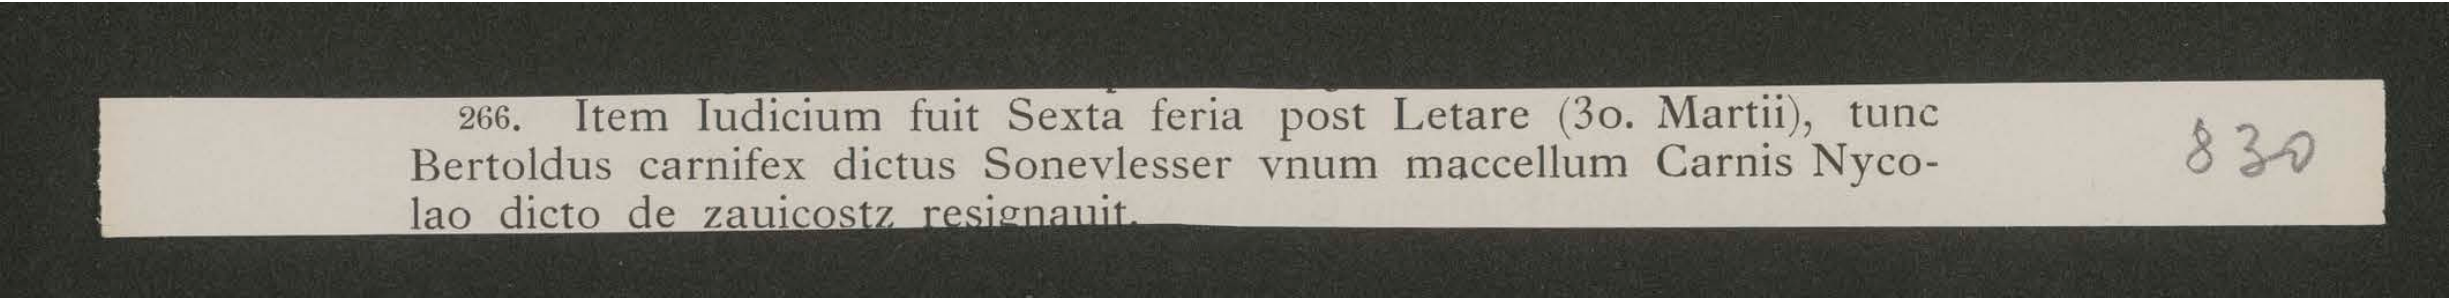 266. Item Iudicium fuit Sexta feria post Letare (30. Martii), tunc
Bertoldus carnifex dictus Sonevlesser vnum maccellum Carnis Nyco-
lao dicto de zauicostz resignauit.
830